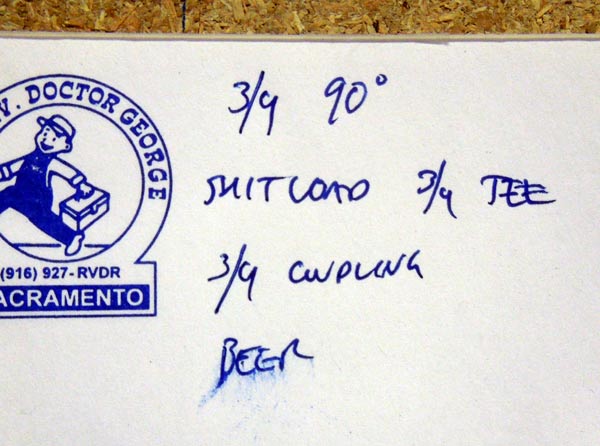 V. DOCTOR GEORGE
(916) 927-RVDR
ACRAMENTO
3/4 90°
SHITLOAD 3/4 TEE
3/4 COUPLING
BEER